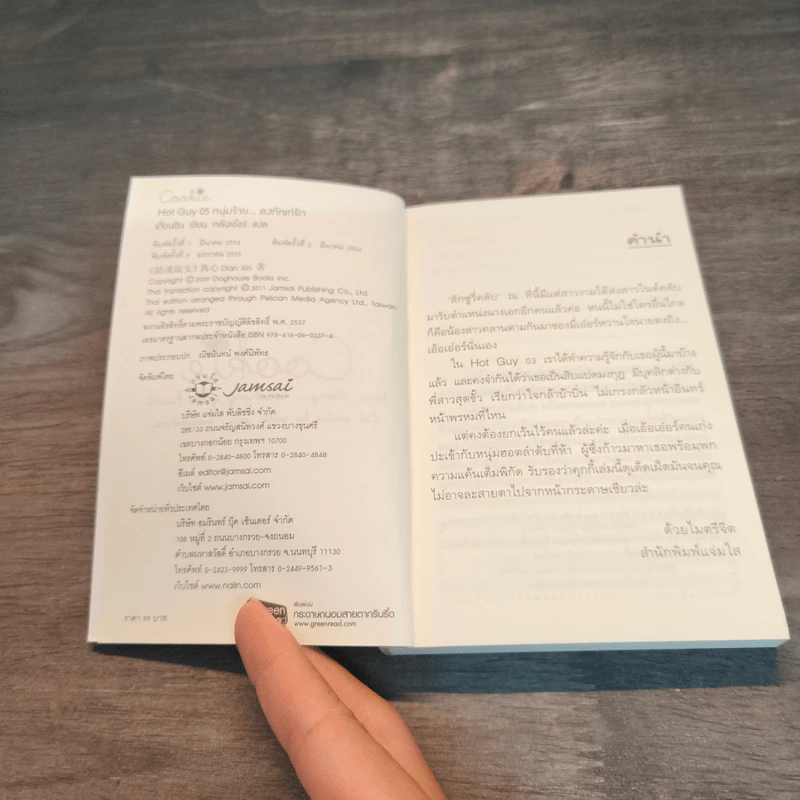 Cookie
Hot Guy 05 หนุ่มร้าย... ดงกัณฑ์รัก
เตียนซิน เขียน หลันเอ๋อร์ แปล
พิมพ์ครั้งที่ 1 มีนาคม 2554 พิมพ์ครั้งที่ 2 มีนาคม 2554
พิมพ์ครั้งที่ 3 มกราคม 2555
典心 Dian Xin 著
Copyright © 2009 Doghouse Books Inc.
Thai translation copyright © 2011 Jamsai Publishing Co., Ltd.
Thai edition arranged through Pelican Media Agency Ltd., Taiwan
All rights reserved
สงวนลิขสิทธิ์ตามพระราชบัญญัติลิขสิทธิ์ พ.ศ. 2537
เลขมาตรฐานสากลประจำหนังสือ ISBN 978-616-06-0337-4
ภาพประกอบปก ณัชนันทน์ พงศ์นิพัทธ
จัดพิมพ์โดย
Jamsai
บริษัท แจ่มใส พับลิชชิ่ง จำกัด
285/33 ถนนจรัญสนิทวงศ์ แขวงบางขุนศรี
เขตบางกอกน้อย กรุงเทพฯ 10700
โทรศัพท์ 0-2840-4800 โทรสาร 0-2840-4848
อีเมล์ editor@jamsai.com
เว็บไซต์ www.jamsai.com
จัดจำหน่ายทั่วประเทศโดย
บริษัท อมรินทร์ บุ๊ค เซ็นเตอร์ จำกัด
108 หมู่ที่ 2 ถนนบางกรวย-จงถนอม
ตำบลมหาสวัสดิ์ อำเภอบางกรวย จ.นนทบุรี 11130
โทรศัพท์ 0-2423-9999 โทรสาร 0-2449-9561-3
เว็บไซต์ www.naiin.com
ราคา 99 บาท
พิมพ์บน
กระดาษถนอมสายตากรีนรี้ด
www.greenread.com
คำนำ
'ลักชูรีคลับ' ณ ที่นี้มีแต่สาวงามได้ส่งสาวในต์คลับ
มารับตำแหน่งนางเอกอีกคนแล้วค่ะ หนนี้ไม่ใช่ใครอื่นไกล
ก็คือน้องสาวคลานตามกันมาของมี่เอ๋อร์หวานใจนายตงถิง...
เอ้อเอ๋อร์นั่นเอง
ใน Hot Guy 03 เราได้ทำความรู้จักกับเธอผู้นี้มาบ้าง
แล้ว และคงจำกันได้ว่าเธอเป็นสิบแปดมงกุฎ มีบุคลิกต่างกับ
พี่สาวสุดขั้ว เรียกว่าใจกล้าบ้าบิ่น ไม่เกรงกลัวหน้าอินทร์
หน้าพรหมที่ไหน
แต่คงต้องยกเว้นไว้คนแล้วล่ะค่ะ เมื่อเอ้อเอ๋อร์คนเก่ง
ปะเข้ากับหนุ่มฮอตลำดับที่ห้า ผู้ซึ่งก้าวมาหาเธอพร้อมพก
ความแค้นเต็มพิกัด รับรองว่าคุกกี้เล่มนี้ดุเด็ดเผ็ดมันจนคุณ
ไม่อาจละสายตาไปจากหน้ากระดาษเชียวล่ะ
ด้วยไมตรีจิต
สำนักพิมพ์แจ่มใส